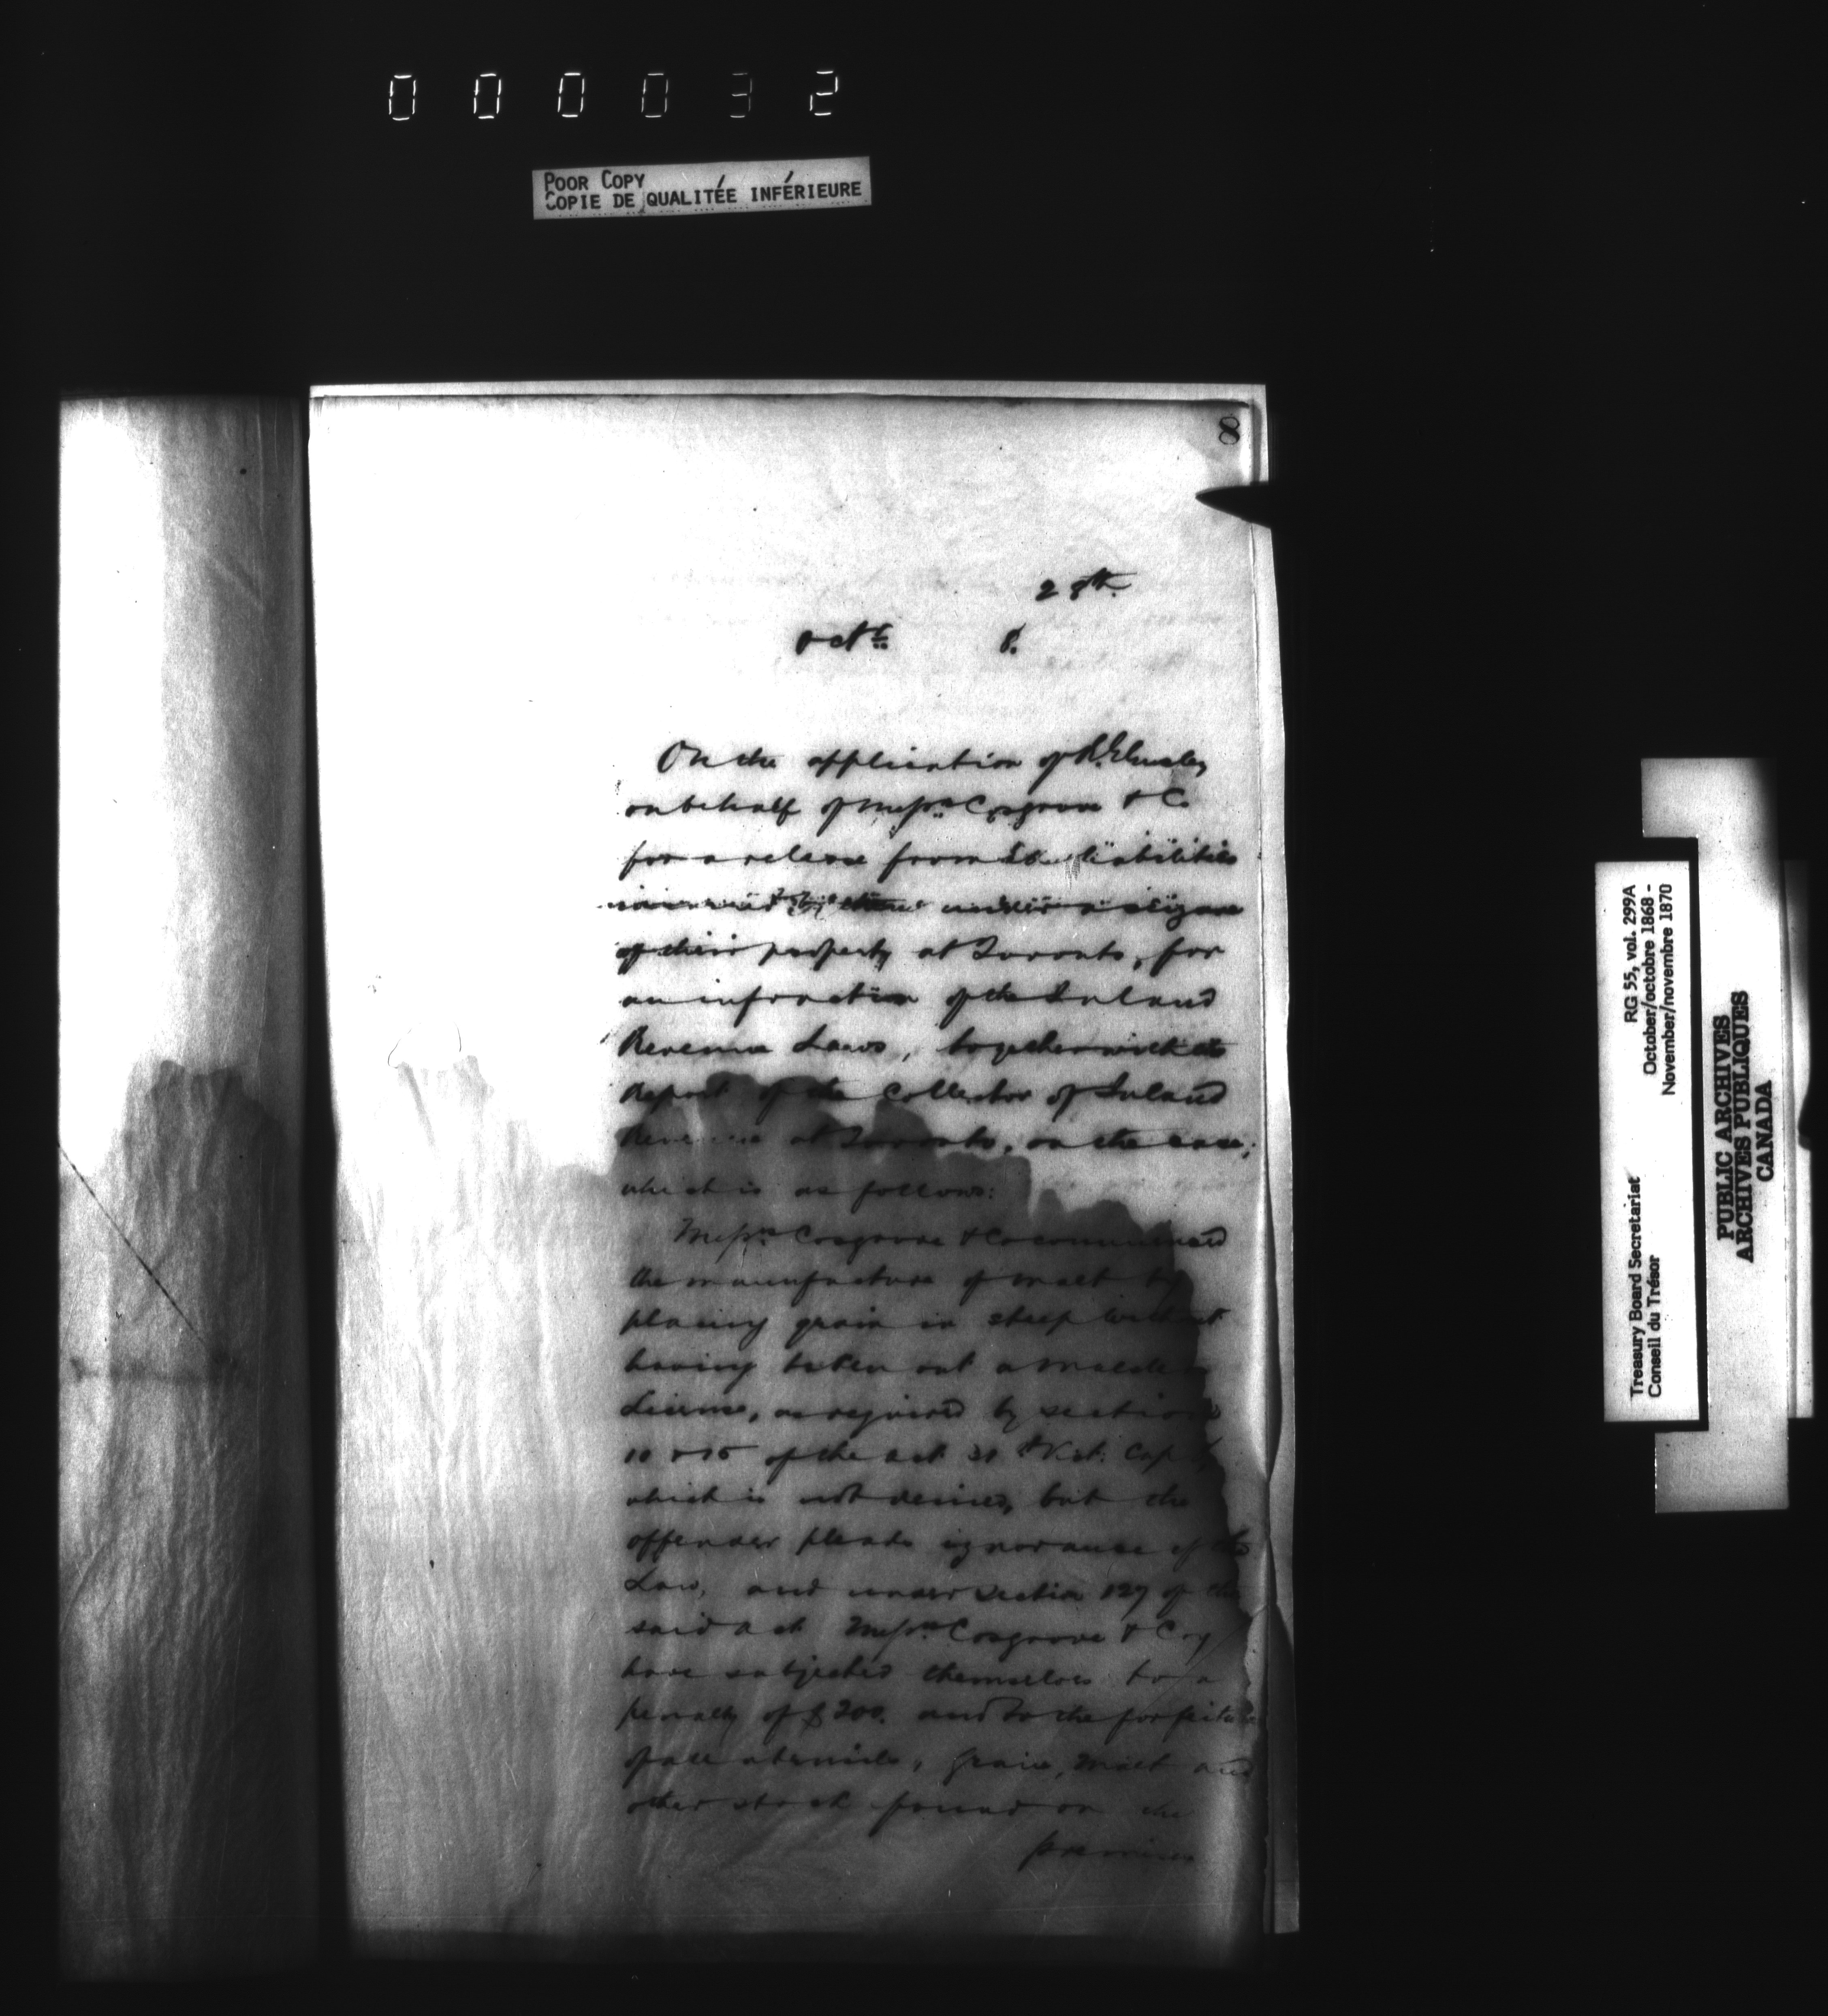 000032
POOR COPY
COPIE DE QUALITÉE INFÉRIEURE
8
28th.
Octr. 8.
On the application of R. Elmsley
on behalf of Messrs Cosgrove & Co
for a release from the liabilities
incurred by them under a seizure
of their property at Toronto, for
an infraction of the Inland
Revenue Laws, together with the
Report of the Collector of Inland
Revenue at Toronto, on the case,
which is as follows:
Messrs Cosgrove & Co commenced
the manufacture of malt by
placing grain in steep without
having taken out a
License, as required by sections
10 & 15 of the act 31 Vict: Cap
which is not denied, but the
offender pleads ignorance of the
Law, and under Section 127 of the
said act Messrs Cosgrove & Coy
have subjected themselves to a
penalty of $200. and to the forfeiture
of all utensils, Grain, Malt and
other stock found on the
premises
Treasury Board Secretariat RG 55, vol. 299A
Conseil du Trésor October/octobre 1868 -
November/novembre 1870
PUBLIC ARCHIVES
ARCHIVES PUBLIQUES
CANADA